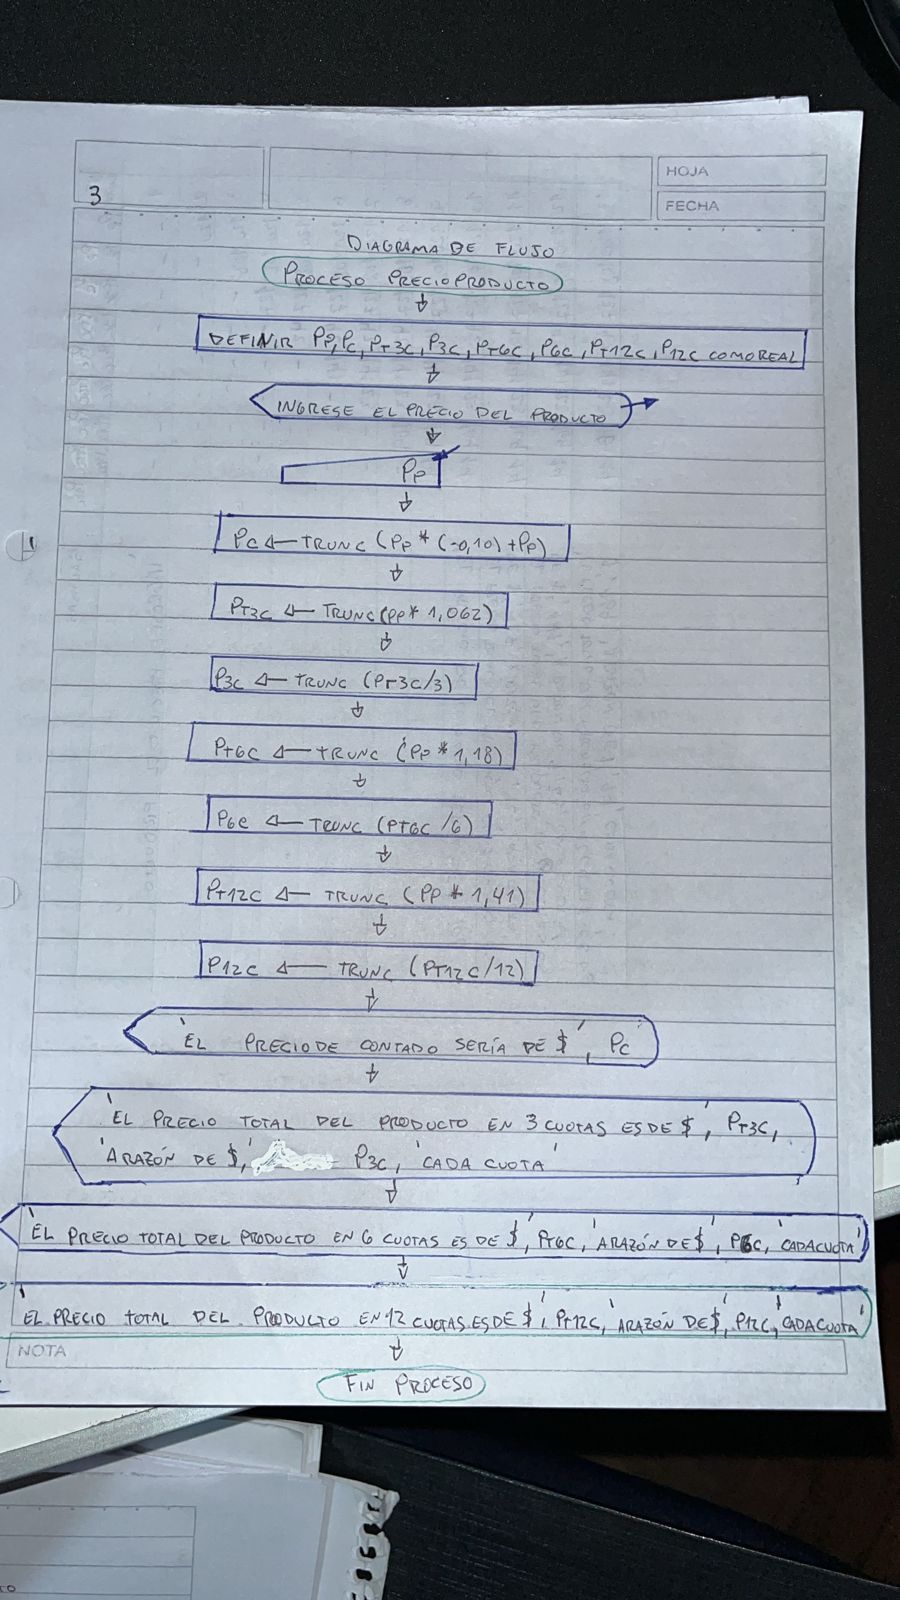 HOJA
3
FECHA
DIAGRAMA DE FLUJO
PROCESO PRECIOPRODUCTO
DEFINIR PP, PC, PT3C, P3C, PT6C, P6C, PT12C, P12C COMO REAL
INGRESE EL PRECIO DEL PRODUCTO
PP
PC ← TRUNC (PP * (-0,10) + PP)
PT3C ← TRUNC (PP * 1,062)
P3C ← TRUNC (PT3C/3)
PT6C ← TRUNC (PP * 1,18)
P6C ← TRUNC (PT6C /6)
PT12C ← TRUNC (PP * 1,41)
P12C ← TRUNC (PT12C/12)
'EL PRECIO DE CONTADO SERÍA DE $', PC
'EL PRECIO TOTAL DEL PRODUCTO EN 3 CUOTAS ES DE $', PT3C,
'ARAZÓN DE $', P3C, 'CADA CUOTA'
'EL PRECIO TOTAL DEL PRODUCTO EN 6 CUOTAS ES DE $', PT6C, 'ARAZÓN DE $', P6C, 'CADA CUOTA'
'EL PRECIO TOTAL DEL PRODUCTO EN 12 CUOTAS ES DE $', PT12C, 'ARAZÓN DE $', P12C, 'CADA CUOTA'
NOTA
FIN PROCESO